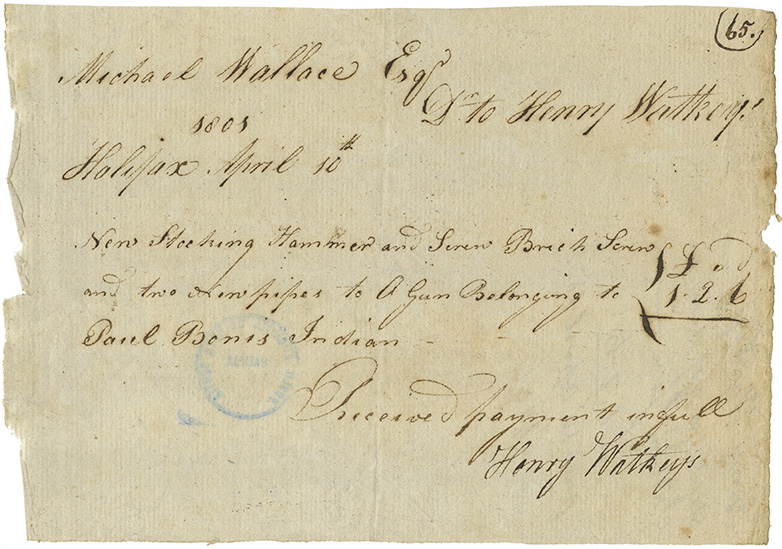 65.
Michael Wallace Esqr
Dr to Henry Watkeys
1801
Halifax April 10th
New Stocking Hammer and Screw Brich Screw
and two New pipes to A Gun Belonging to
£ " d
1.2.6
Paul Bonis Indian
Received payment in full
Henry Watkeys